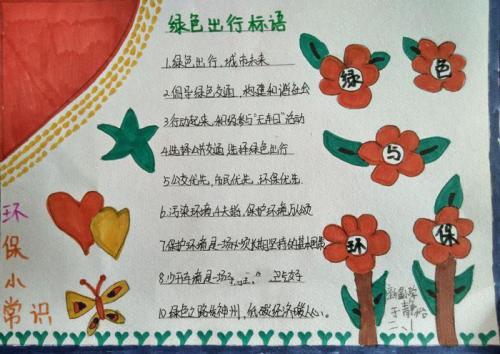 绿色出行标语
1.绿色出行,城市未来
2.倡导绿色交通,构建和谐社会
3.行动起来,积极参与"无车日"活动
4.选择公共交通,选择绿色出行
5.公交优先,市民优先,环保优先
6.污染环境 保护环境
7.保护环境是一场 长期坚持的
8.少开车
10.绿色之路 神州,低碳经济暖人心。
绿色与环保
环保小常识
三、1